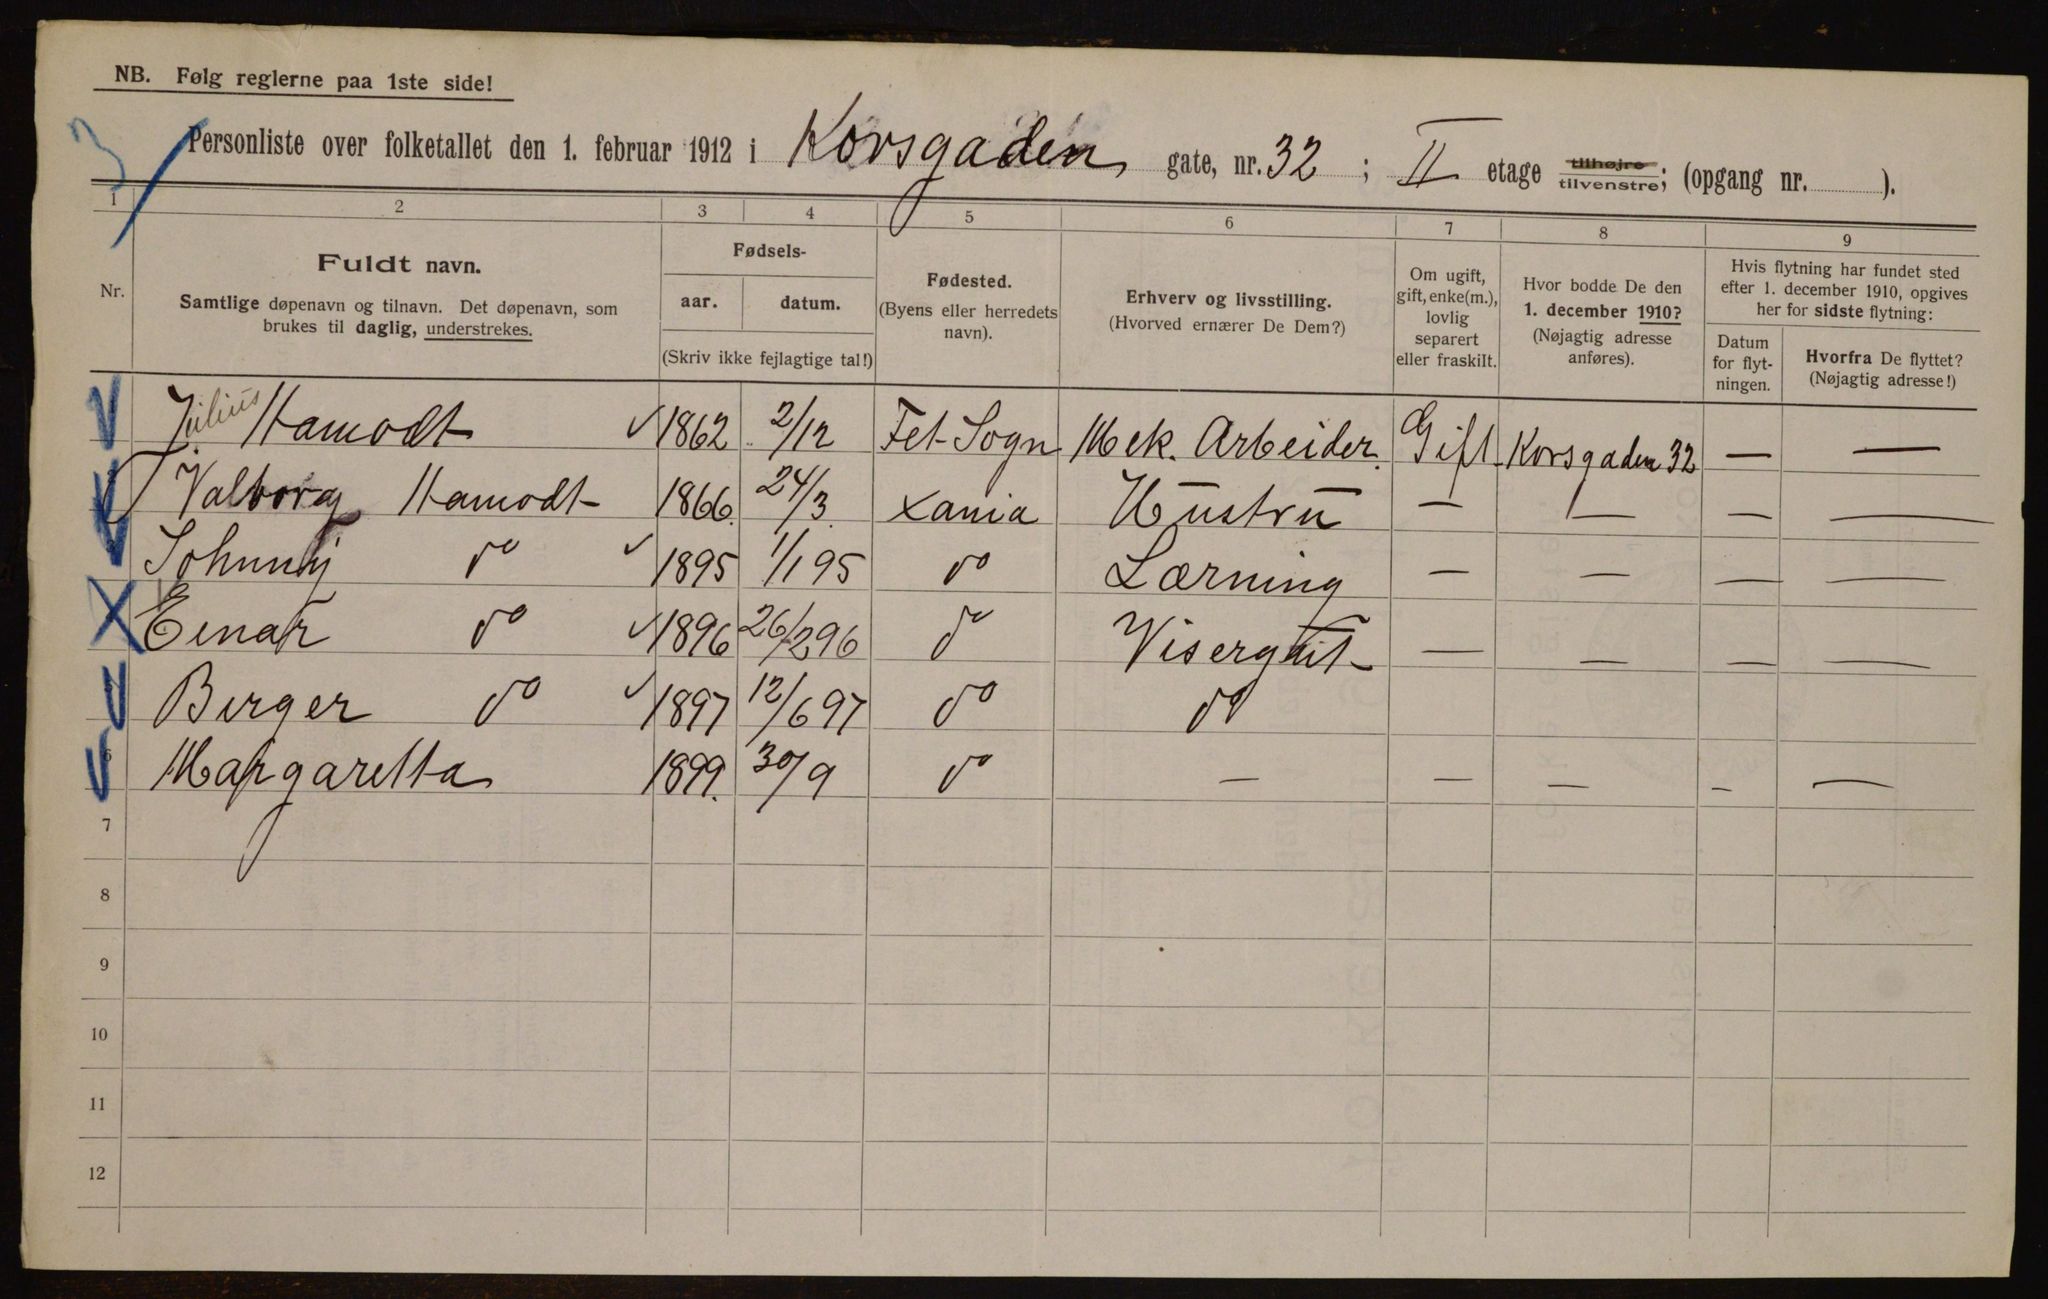 NB. Følg reglerne paa 1ste side!
3
Personliste over folketallet den 1. februar 1912 i Korsgaden gate, nr. 32 ; II etage tilhøjre tilvenstre; (opgang nr. ).
1 2 3 4 5 6 7 8 9
Nr.
Fuldt navn.
Samtlige døpenavn og tilnavn. Det døpenavn, som
brukes til daglig, understrekes.
Fødsels-
aar. datum.
(Skriv ikke fejlagtige tal!)
Fødested.
(Byens eller herredets
navn).
Erhverv og livsstilling.
(Hvorved ernærer De Dem?)
Om ugift,
gift, enke(m.),
lovlig
separert
eller fraskilt.
Hvor bodde De den
1. december 1910?
(Nøjagtig adresse
anføres).
Hvis flytning har fundet sted
efter 1. december 1910, opgives
her for sidste flytning:
Datum
for flyt-
ningen.
Hvorfra De flyttet?
(Nøjagtig adresse!)
Julius Hamodt 1862 2/12 Fet Sogn Mek. Arbeider. Gift Korsgaden 32 — —
Valborg Hamodt 1866. 24/3 Xania Hustru — — — —
Johnny do 1895 1/1 95 do Lærning — — — —
Einar do 1896 26/2 96 do Visergut — — — —
Birger do 1897 12/6 97 do do
6 Margaretta 1899. 30/9 do — — — — —
7
8
9
10
11
12